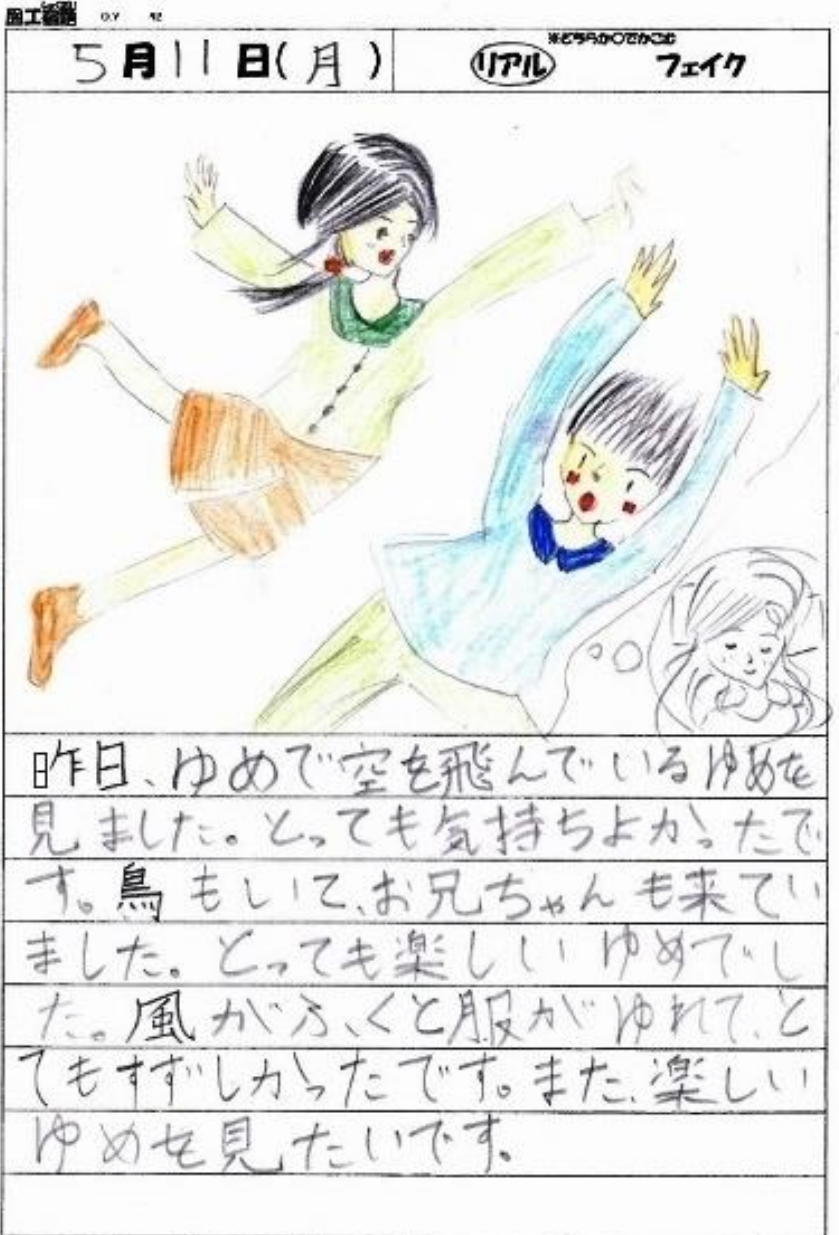 図工宿題
※どちらか○でかこむ
5月11日(月) リアル フェイク
昨日、ゆめで空を飛んでいるゆめを
見ました。とっても気持ちよかったで
す。鳥もいて、お兄ちゃんも来てい
ました。とっても楽しいゆめでし
た。風がふくと服がゆれて、と
てもすずしかったです。また、楽しい
ゆめを見たいです。